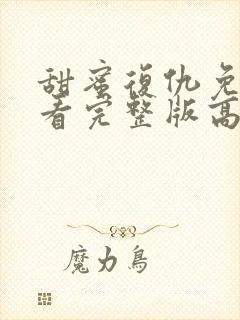 甜蜜復仇免
看完整版高
魔力鳥